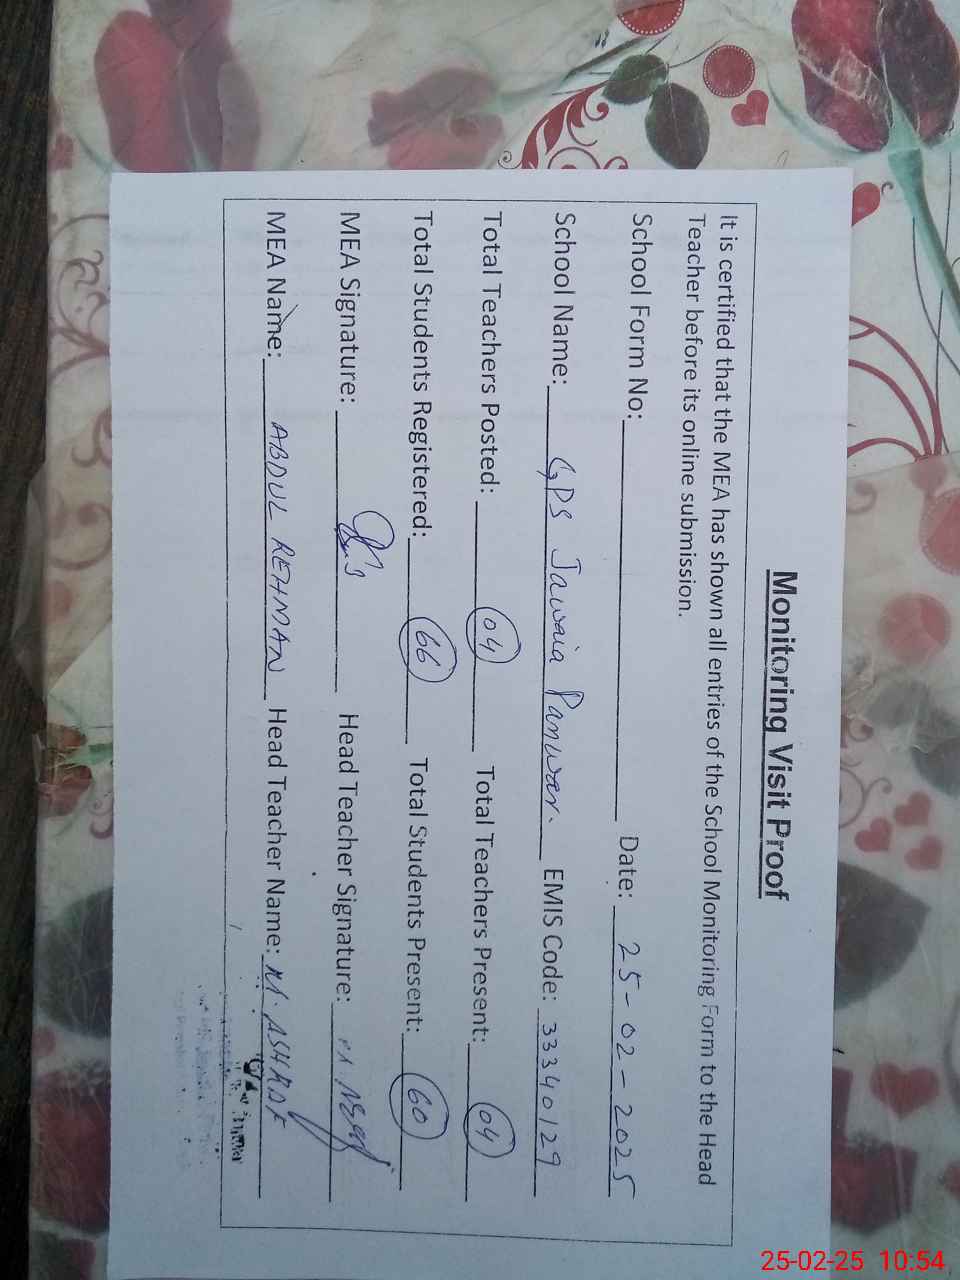 Monitoring Visit Proof
It is certified that the MEA has shown all entries of the School Monitoring Form to the Head
Teacher before its online submission.
School Form No: Date: 25-02-2025
School Name: GPS Jawaia Panwar. EMIS Code: 33340129
Total Teachers Posted: 04 Total Teachers Present: 04
Total Students Registered: 66 Total Students Present: 60
MEA Signature: Head Teacher Signature:
MEA Name: ABDUL REHMAN Head Teacher Name: M. ASHRAF
25-02-25 10:54